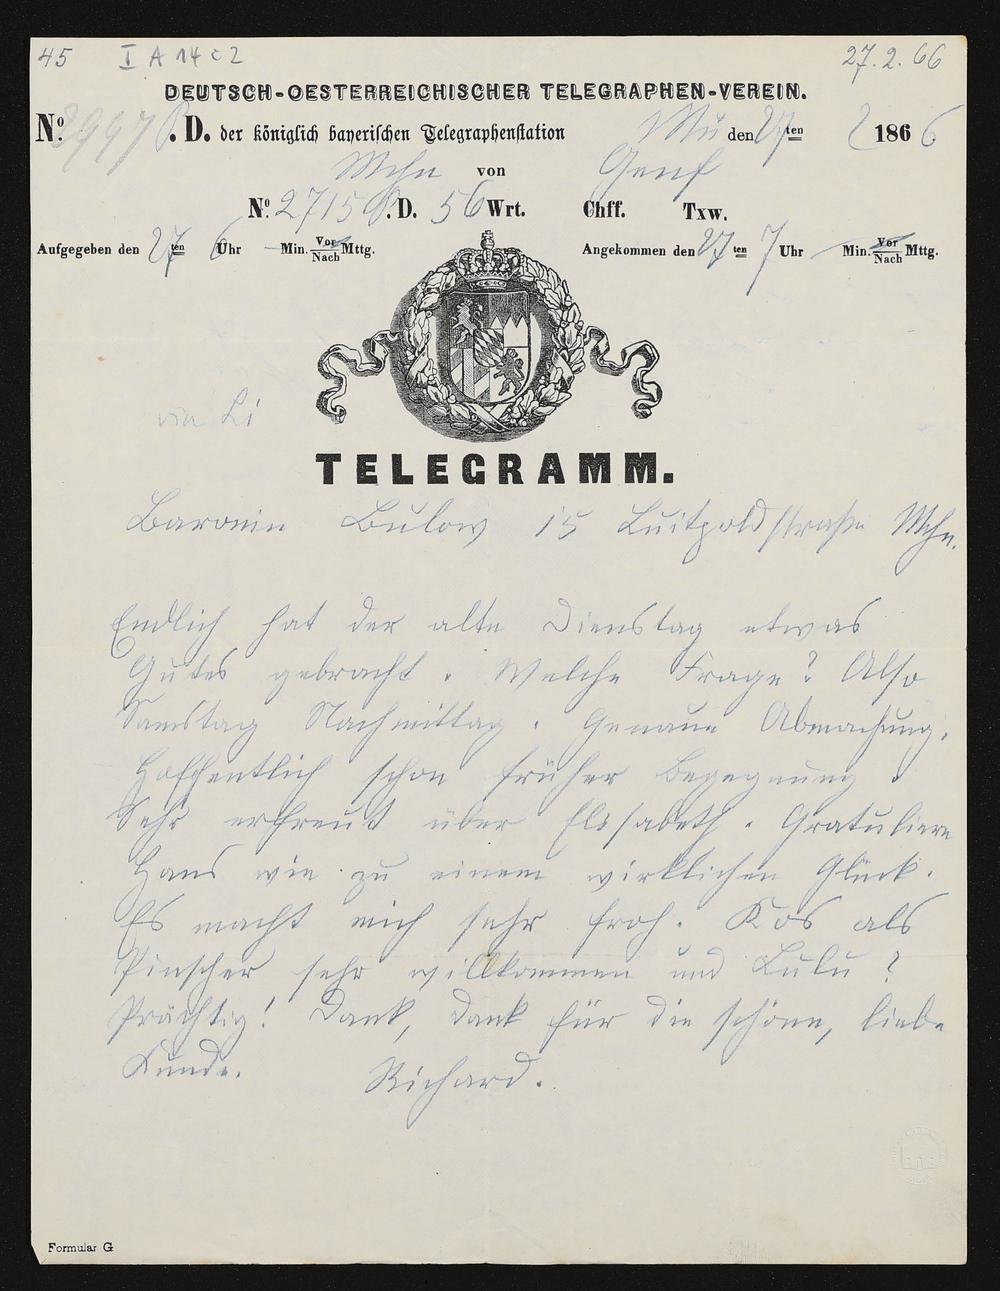 45 I A 14 c 2 27. 2. 66
DEUTSCH-OESTERREICHISCHER TELEGRAPHEN-VEREIN.
No. 2997 . D. der königlich bayerischen Telegraphenstation Mü den 27ten 2 1866
Mchn von Genf
No. 2715 . D. 56 Wrt. Chff. Txw.
Aufgegeben den 27ten 6 Uhr – Min. Vor Nach Mttg. Angekommen den 27ten 7 Uhr – Min. Vor Nach Mttg.
via Li
TELEGRAMM.
Baronin Bulow 15 Luitpoldstraße Mchn.
Endlich hat der alte Dienstag etwas
Gutes gebracht. Welche Frage? Also
Samstag Nachmittag. Genaue Abmachung.
Hoffentlich schon früher Begegnung.
Sehr erfreut über Elisabeth. Gratuliere
Hans wie zu einem wirklichen Glück.
Es macht mich sehr froh. Kos als
Pinscher sehr willkommen und Lulu?
Prächtig! Dank, Dank für die schöne, liebe
Kunde. Richard.
Formular G